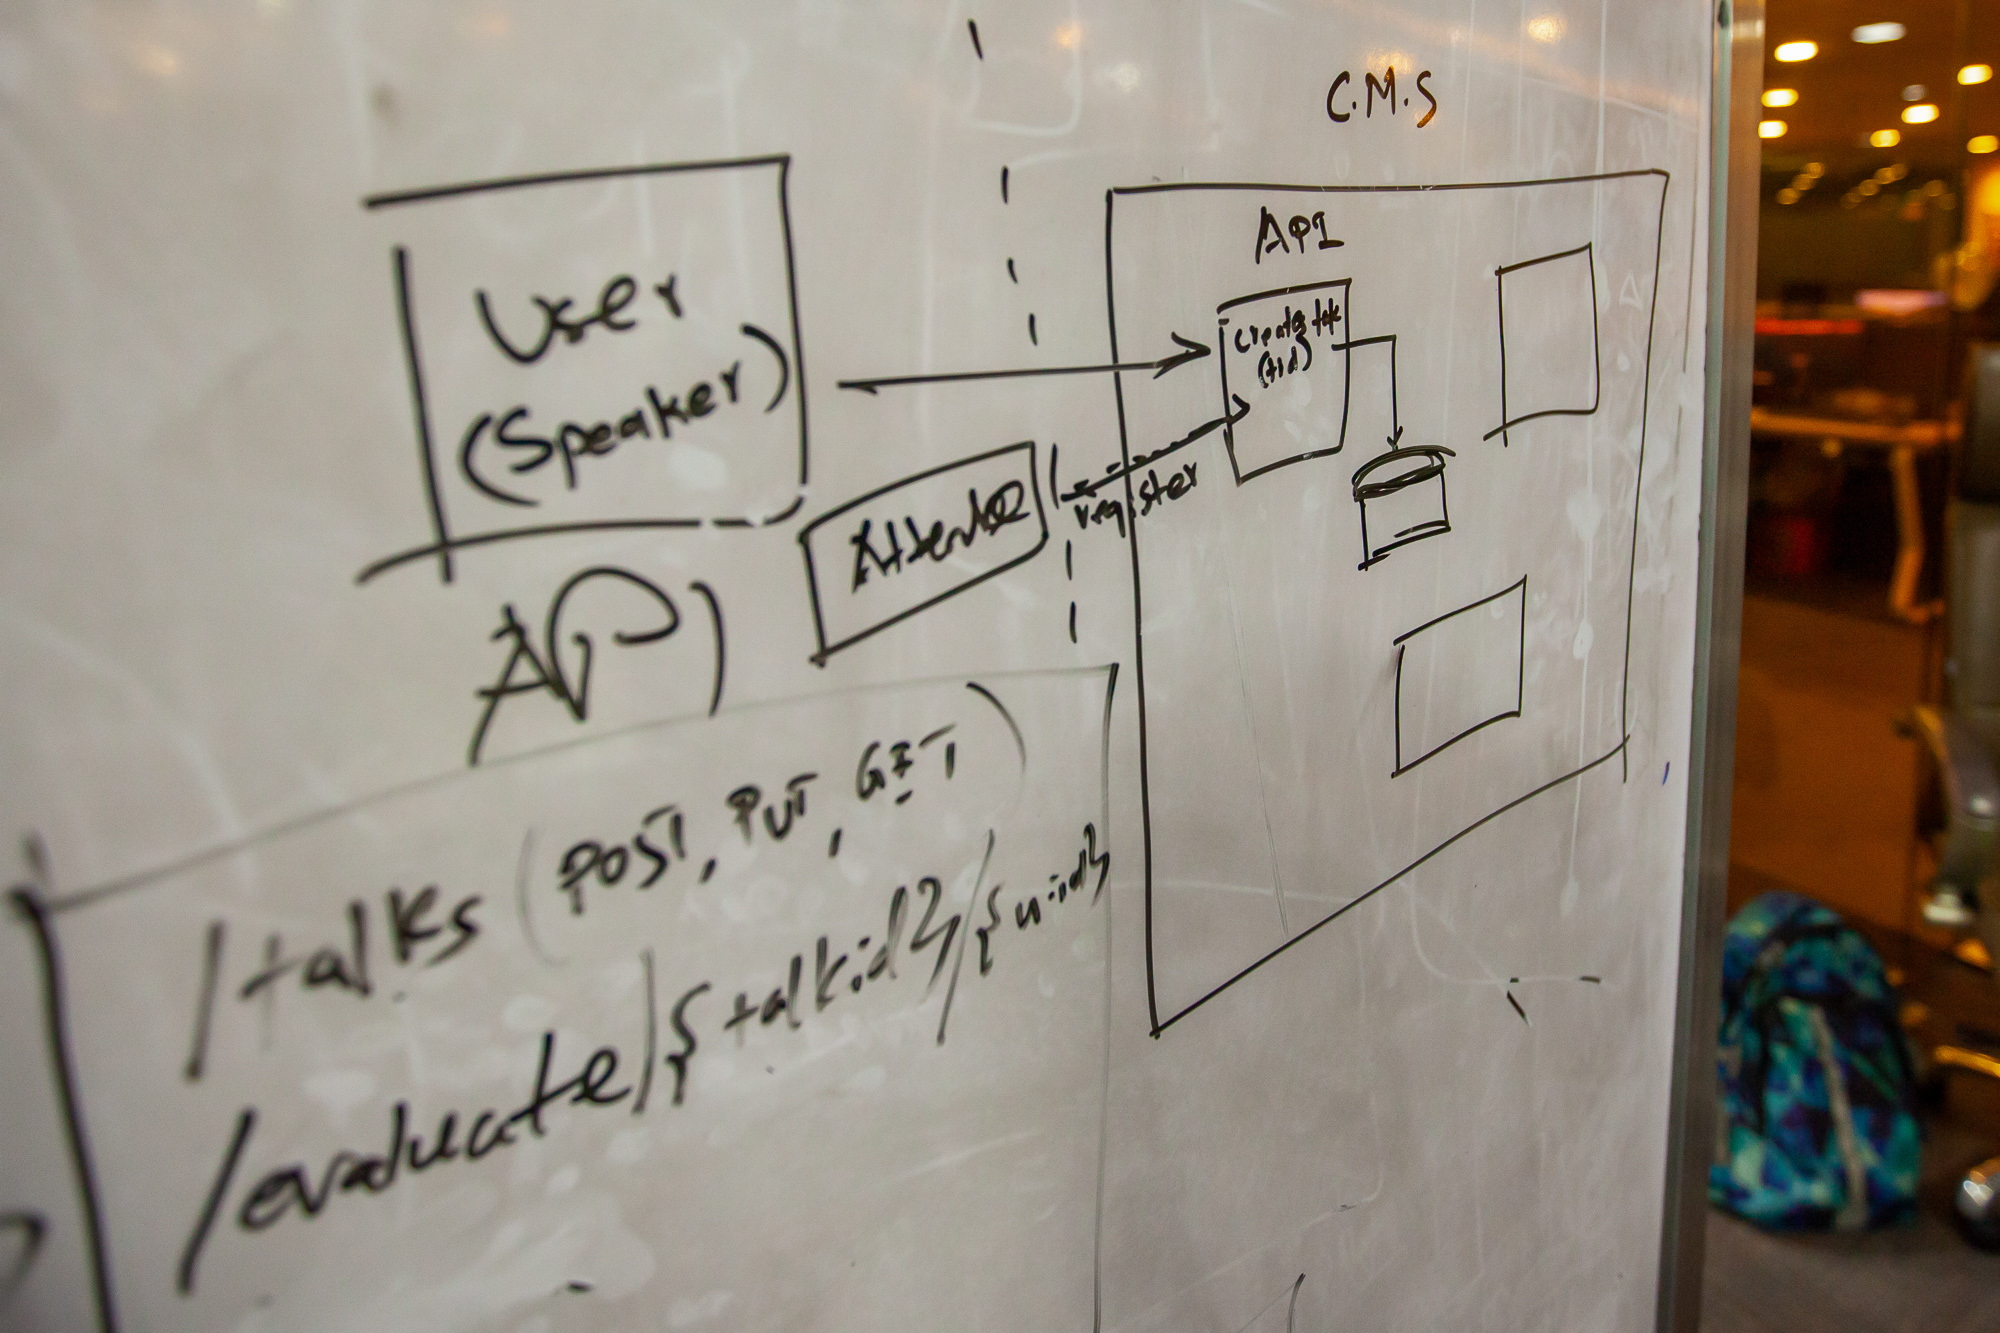 C.M.S
API
User
(Speaker)
(tid)
Attendee
register
API
/talks (POST, PUT, GET)
/evaluate/{talkid}/{u:id}